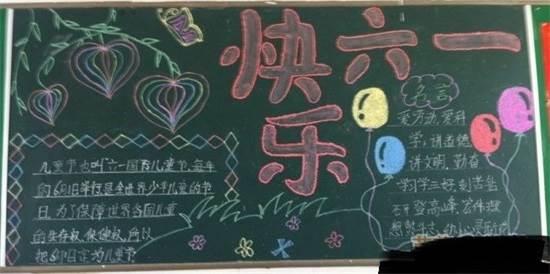 快六一
乐
名言
爱劳动,爱科
学,讲道德
讲文明,勤奋
学习学三好,刻苦
石登高峰,宏伟理
想 斗志,幼小心灵
儿童节也叫六一国际儿童节,每年
的6月1日举行是全世界少年儿童的节
日,为了保障世界各国儿童
的生存权,保健权,所以
把6月1日定为儿童节